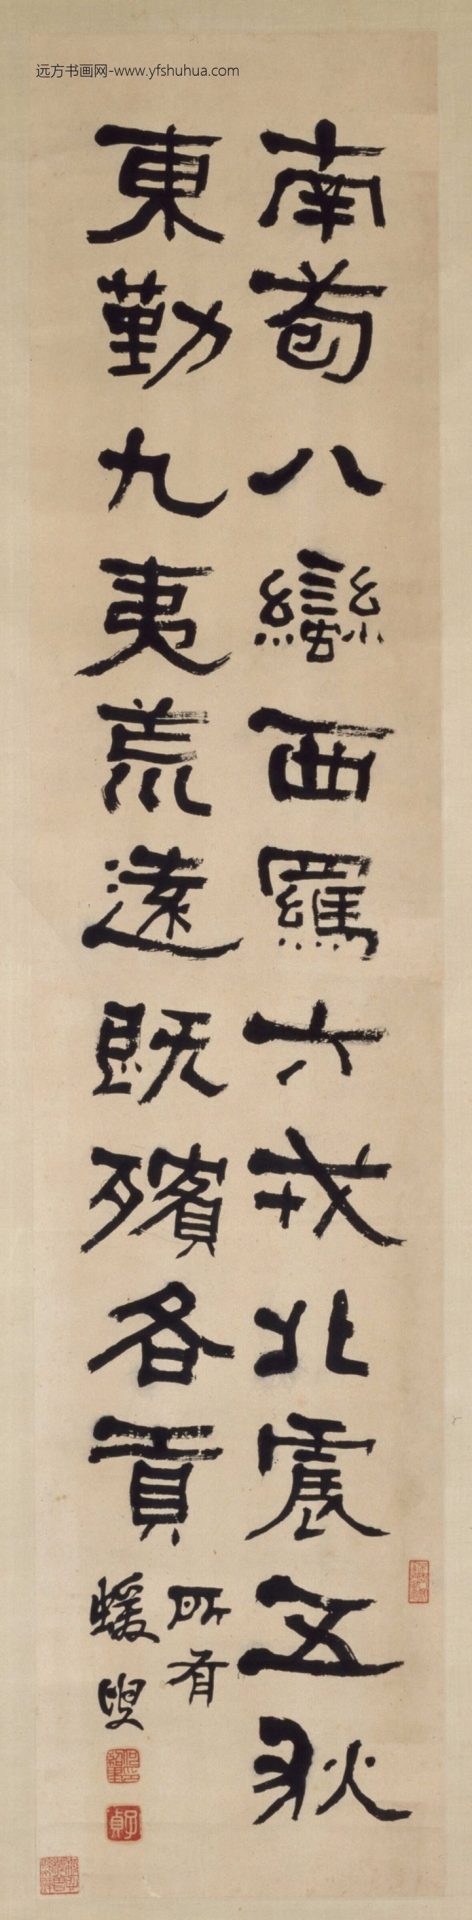 远方书画网-www.yfshuhua.com
南苞八蠻西羈六戎北震五狄
東勤九夷荒遠既殯各貢
所有
蝯叟
子貞